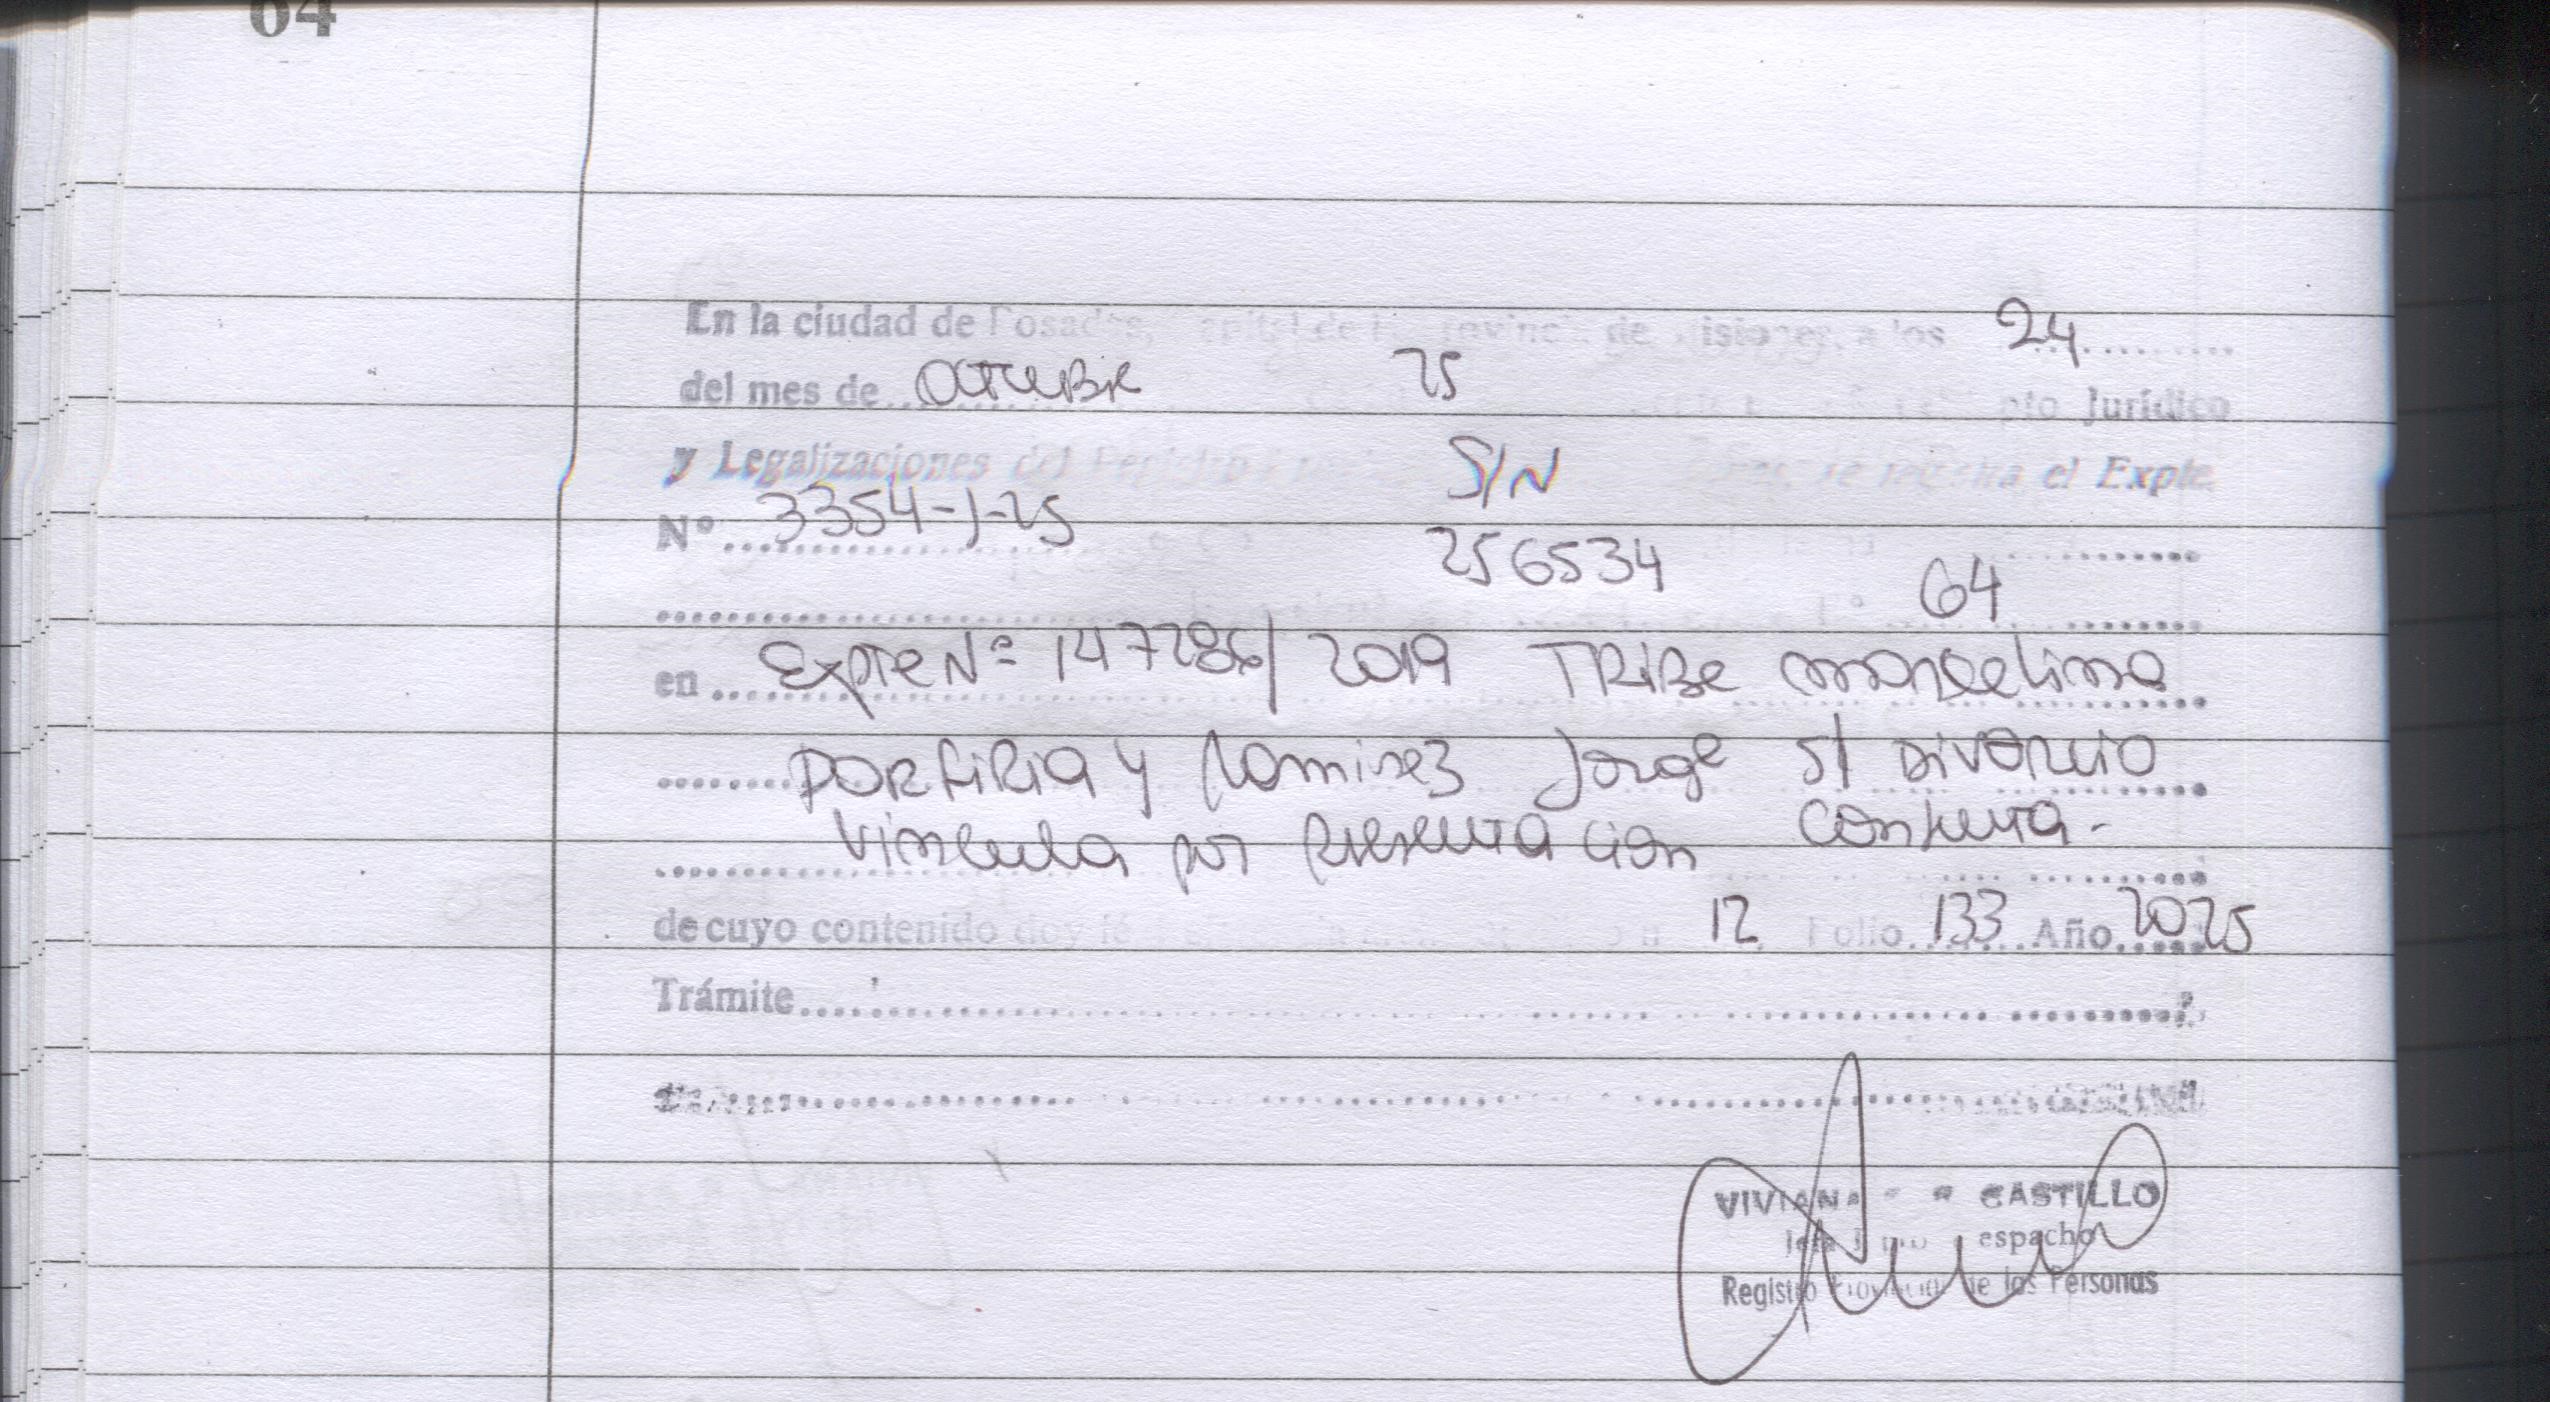 64
En la ciudad de Posadas, Capital de la Provincia de Misiones, a los 24
del mes de Octubre 25 Jurídico
y Legalizaciones del Registro S/N se el Expte.
Nº 3354-J-25
256534 64
en Expte Nº 147286/2019 TRIBE marcelina
PORFIRIA y Ramirez Jorge s/ DIVORCIO
Vincular por Presentacion Conjunta-
de cuyo contenido doy fé 12 Folio 133 Año 2025
Trámite
VIVIANA CASTILLO
Jefa Dpto espacho
Registro Provincial de las Personas